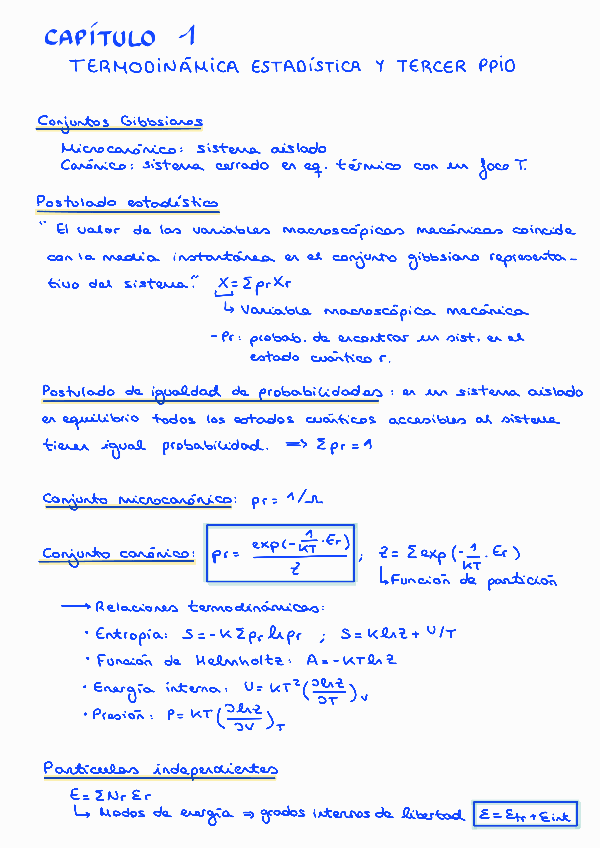 CAPÍTULO 1
TERMODINÁMICA ESTADÍSTICA Y TERCER PPIO
Conjuntos Gibbsianos
Microcanónico: sistema aislado
Canónico: sistema cerrado en eq. térmico con un foco T.
Postulado estadístico
"El valor de las variables macroscópicas mecánicas coincide
con la media instantánea en el conjunto gibbsiano representa-
tivo del sistema." X = Σ pr Xr
↳ Variable macroscópica mecánica
- Pr: probab. de encontrar un sist. en el
estado cuántico r.
Postulado de igualdad de probabilidades: en un sistema aislado
en equilibrio todos los estados cuánticos accesibles al sistema
tienen igual probabilidad. ⟹ Σ pr = 1
Conjunto microcanónico: pr = 1/Ω
Conjunto canónico: pr = exp(-1/KT · Er) / Z ; Z = Σ exp(-1/KT · Er)
↳ Función de partición
⟶ Relaciones termodinámicas:
· Entropía: S = -K Σ pr ln pr ; S = K ln Z + U/T
· Función de Helmholtz: A = -KT ln Z
· Energía interna: U = KT² (∂ln Z/∂T)V
· Presión: P = KT (∂ln Z/∂V)T
Partículas independientes
E = Σ Nr Er
↳ Modos de energía ⇒ grados internos de libertad ε = εtr + εint